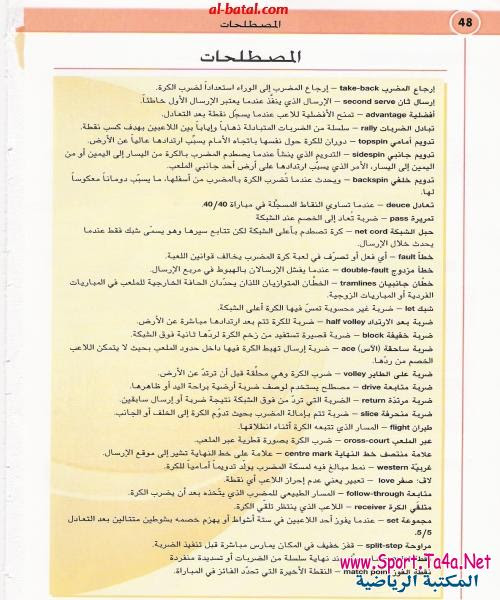 al-batal.com
المصطلحات
48
المصطلحات
إرجاع المضرب take-back – إرجاع المضرب إلى الوراء استعداداً لضرب الكرة.
إرسال ثان second serve – الإرسال الذي ينفّذ عندما يعتبر الإرسال الأول خاطئاً.
أفضلية advantage – تمنح الأفضلية للاعب عندما يسجّل نقطة بعد التعادل.
تبادل الضربات rally – سلسلة من الضربات المتبادلة ذهاباً وإياباً بين اللاعبين بهدف كسب نقطة.
تدويم أمامي topspin – دوران للكرة حول نفسها باتجاه الأمام يسبّب ارتدادها عالياً عن الأرض.
تدويم جانبي sidespin – التدويم الذي ينشأ عندما يصطدم المضرب بالكرة من اليسار إلى اليمين أو من
اليمين إلى اليسار، الأمر الذي يسبّب ارتدادها على أرض أحد جانبي الملعب.
تدويم خلفي backspin – ويحدث عندما تضرب الكرة بالمضرب من أسفلها، ما يسبّب دوماناً معكوساً
لها.
تعادل deuce – عندما تساوي النقاط المسجلة في مباراة 40/40.
تمريرة pass – ضربة تُعاد إلى الخصم عند الشبكة
حبل الشبكة net cord – كرة تصطدم بأعلى الشبكة لكن تتابع سيرها وهو يسمّى شبك فقط عندما
يحدث خلال الإرسال.
خطأ fault – أي فعل أو تصرّف في لعبة كرة المضرب يخالف قوانين اللعبة.
خطأ مزدوج double-fault – عندما يفشل الإرسالان بالهبوط في مربع الإرسال.
خطان جانبيان tramlines – الخطّان المتوازيان اللذان يحدّدان الحافة الخارجية للملعب في المباريات
الفردية أو المباريات الزوجية.
شبك let – ضربة غير محسوبة تمسّ فيها الكرة أعلى الشبكة.
ضربة بعد الارتداد half volley – ضربة للكرة تتم بعد ارتدادها مباشرة عن الأرض.
ضربة خفيفة block – ضربة قصيرة تستفيد من زخم الكرة لردّها ثانية فوق الشبكة.
ضربة ساحقة (الآس) ace – ضربة إرسال تهبط الكرة فيها داخل حدود الملعب بحيث لا يتمكن اللاعب
الخصم من ردّها.
ضربة على الطاير volley – ضرب الكرة وهي محلّقة قبل أن ترتدّ عن الأرض.
ضربة متابعة drive – مصطلح يستخدم لوصف ضربة أرضية براحة اليد أو ظاهرها.
ضربة مرتدّة return – الضربة التي تردّ من فوق الشبكة نتيجة ضربة أو إرسال سابقين.
ضربة منحرفة slice – ضربة تتم بإمالة المضرب بحيث تدوّم الكرة إلى الخلف أو الجانب.
طيران flight – المسار الذي تتبعه الكرة أثناء انطلاقها.
عبر الملعب cross-court – ضرب الكرة بصورة قطرية عبر الملعب.
علامة منتصف خط النهاية centre mark – علامة على خط النهاية تشير إلى موقع الإرسال.
غربيّة western – نمط مبالغ فيه لمسكة المضرب يولّد تدويماً أمامياً للكرة.
لاف: صفر love – تعبير يعني عدم إحراز اللاعب أي نقطة.
متابعة follow-through – المسار الطبيعي للمضرب الذي يتّخذه بعد أن يضرب الكرة.
متلقّي الكرة receiver – اللاعب الذي ينتظر تلقّي الكرة.
مجموعة set – عندما يفوز أحد اللاعبين في ستة أشواط أو يهزم خصمه بشوطين متتاليين بعد التعادل
5/5.
مراوحة split-step – قفز خفيف في المكان يمارس مباشرة قبل تنفيذ الضربة.
نهاية سلسلة من الضربات أو تسديدة منفردة
نقطة الفوز match point – النقطة الأخيرة التي تحدّد الفائز في المباراة.
www.Sport-Ta4a.Net
المكتبة الرياضية